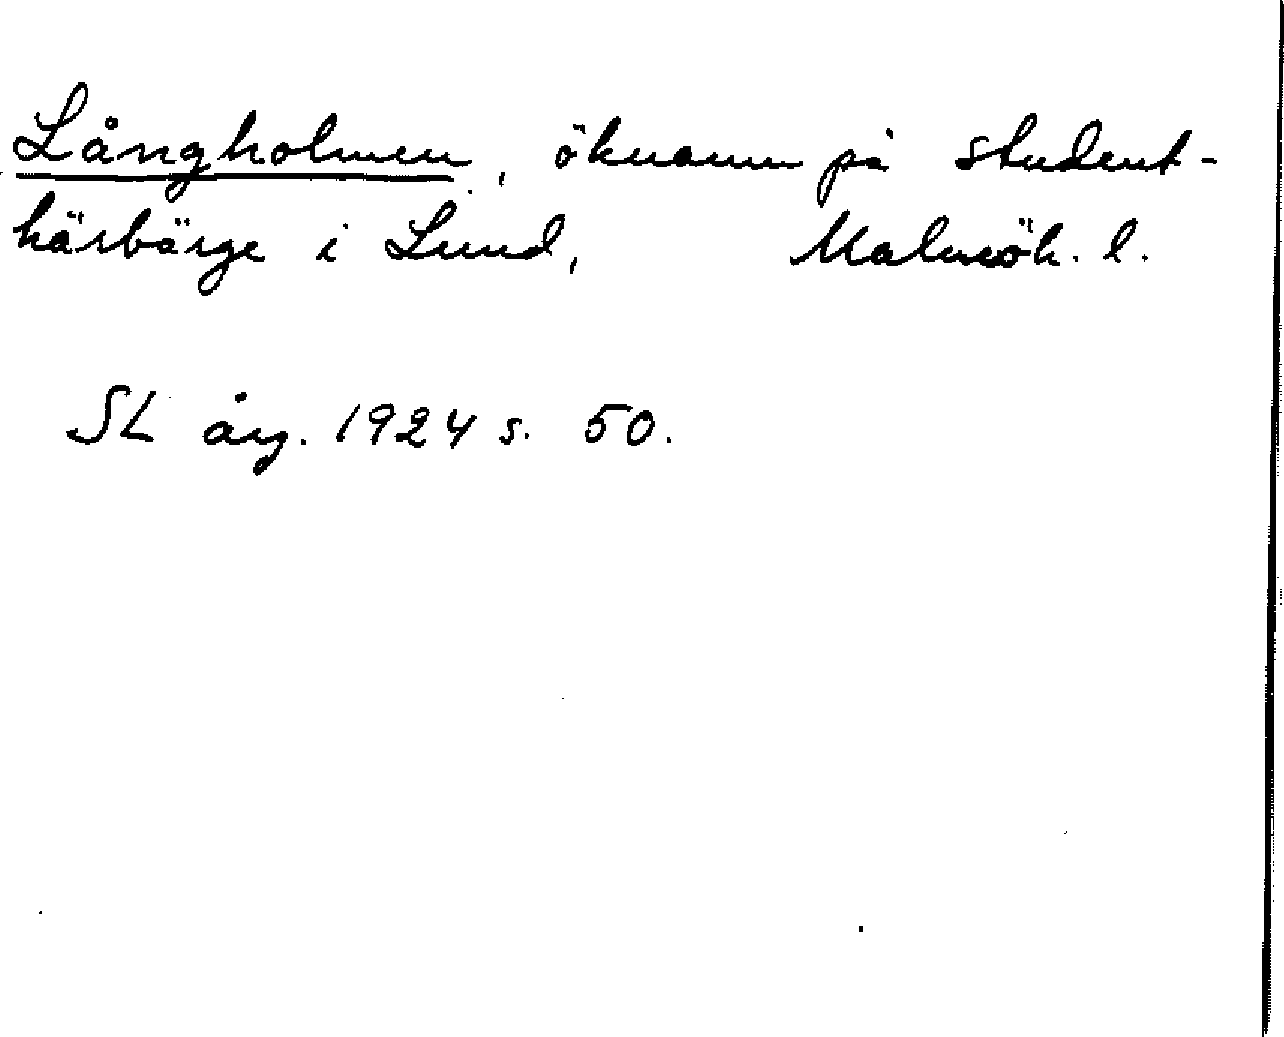 Långholmen, öknamn på student-
härbärge i Lund, Malmöh. l.
SL årg. 1924 s. 50.